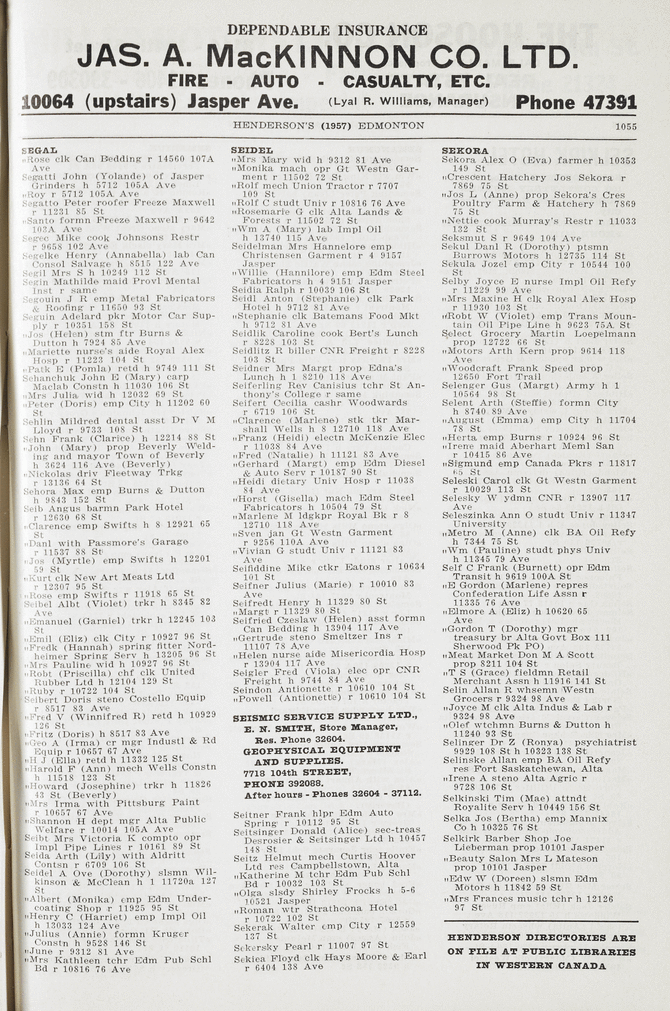 DEPENDABLE INSURANCE
JAS. A. MacKINNON CO. LTD.
FIRE - AUTO - CASUALTY, ETC.
10064 (upstairs) Jasper Ave. (Lyal R. Williams, Manager) Phone 47391
HENDERSON'S (1957) EDMONTON 1055
SEGAL
"Rose clk Can Bedding r 14560 107A
Ave
Segatti John (Yolande) of Jasper
Grinders h 5712 105A Ave
"Roy r 5712 105A Ave
Segatto Peter roofer Freeze Maxwell
r 11231 85 St
"Santo formn Freeze Maxwell r 9642
103A Ave
Segec Mike cook Johnsons Restr
r 9658 102 Ave
Segelke Henry (Annabella) lab Can
Consol Salvage h 8515 122 Ave
Segil Mrs S h 10249 112 St
Segin Mathilde maid Provl Mental
Inst r same
Segouin J R emp Metal Fabricators
& Roofing r 11650 93 St
Seguin Adelard pkr Motor Car Sup-
ply r 10351 158 St
"Jos (Helen) stm ftr Burns &
Dutton h 7924 85 Ave
"Mariette nurse's aide Royal Alex
Hosp r 11223 104 St
"Patk E (Pomla) retd h 9749 111 St
Sehanchuk John E (Mary) carp
Maclab Constn h 11030 106 St
"Mrs Julia wid h 12032 69 St
"Peter (Doris) emp City h 11202 60
St
Sehlin Mildred dental asst Dr V M
Lloyd r 9733 108 St
Sehn Frank (Clarice) h 12214 88 St
"John (Mary) prop Beverly Weld-
ing and mayor Town of Beverly
h 3624 116 Ave (Beverly)
"Nickolas driv Fleetway Trkg
r 13136 64 St
Sehora Max emp Burns & Dutton
h 9843 152 St
Seib Angus barmn Park Hotel
r 12630 68 St
"Clarence emp Swifts h 8 12921 65
St
"Danl with Passmore's Garago
r 11537 88 St
"Jos (Myrtle) emp Swifts h 12201
59 St
"Kurt clk New Art Meats Ltd
r 12307 95 St
"Rose emp Swifts r 11918 65 St
Seibel Albt (Violet) trkr h 8345 82
Ave
"Emanuel (Garniel) trkr h 12245 103
St
"Emil (Eliz) clk City r 10927 96 St
"Fredk (Hannah) spring fitter Nord-
heimer Spring Serv h 13205 96 St
"Mrs Pauline wid h 10927 96 St
"Robt (Priscilla) chf clk United
Rubber Ltd h 12104 129 St
"Ruby r 10722 104 St
Seibert Doris steno Costello Equip
r 8517 83 Ave
"Fred V (Winnifred R) retd h 10929
126 St
"Fritz (Doris) h 8517 83 Ave
"Geo A (Irma) cr mgr Industl & Rd
Equip r 10657 67 Ave
"H J (Ella) retd h 11332 125 St
"Harold F (Ann) mech Wells Constn
h 11518 123 St
"Howard (Josephine) trkr h 11826
43 St (Beverly)
"Mrs Irma with Pittsburg Paint
r 10657 67 Ave
"Shannon H dept mgr Alta Public
Welfare r 10014 105A Ave
Seibt Mrs Victoria K compto opr
Impl Pipe Lines r 10161 89 St
Seida Arth (Lily) with Aldritt
Contsn r 6709 106 St
Seidel A Ove (Dorothy) slsmn Wil-
kinson & McClean h 1 11720a 127
St
"Albert (Monika) emp Under-
coating Shop r 11925 95 St
"Henry C (Harriet) emp Impl Oil
h 13033 124 Ave
"Julius (Annie) formn Kruger
Constn h 9528 146 St
"June r 9312 81 Ave
"Mrs Kathleen tchr Edm Pub Schl
Bd r 10816 76 Ave
SEIDEL
"Mrs Mary wid h 9312 81 Ave
"Monika mach opr Gt Westn Gar-
ment r 11502 72 St
"Rolf mech Union Tractor r 7707
109 St
"Rolf C studt Univ r 10816 76 Ave
"Rosemarie G clk Alta Lands &
Forests r 11502 72 St
"Wm A (Mary) lab Impl Oil
h 13740 115 Ave
Seidelman Mrs Hannelore emp
Christensen Garment r 4 9157
Jasper
"Willie (Hannilore) emp Edm Steel
Fabricators h 4 9151 Jasper
Seidia Ralph r 10039 106 St
Seidl Anton (Stephanie) clk Park
Hotel h 9712 81 Ave
"Stephanie clk Batemans Food Mkt
h 9712 81 Ave
Seidlik Caroline cook Bert's Lunch
r 8228 103 St
Seidlitz R biller CNR Freight r 8228
103 St
Seidner Mrs Margt prop Edna's
Lunch h 1 8210 118 Ave
Seiferling Rev Canisius tchr St An-
thony's College r same
Seifert Cecilia cashr Woodwards
r 6719 106 St
"Clarence (Marlene) stk tkr Mar-
shall Wells h 8 12710 118 Ave
"Franz (Heidi) electn McKenzie Elec
r 11038 84 Ave
"Fred (Natalie) h 11121 83 Ave
"Gerhard (Margt) emp Edm Diesel
& Auto Serv r 10187 90 St
"Heidi dietary Univ Hosp r 11038
84 Ave
"Horst (Gisella) mach Edm Steel
Fabricators h 10504 79 St
"Marlene M ldgkpr Royal Bk r 8
12710 118 Ave
"Sven jan Gt Westn Garment
r 9256 110A Ave
"Vivian G studt Univ r 11121 83
Ave
Seifiddine Mike ctkr Eatons r 10634
101 St
Seifner Julius (Marie) r 10010 83
Ave
Seifredt Henry r 11329 80 St
"Margt r 11329 80 St
Seifried Czeslaw (Helen) asst formn
Can Bedding h 13904 117 Ave
"Gertrude steno Smeltzer Ins r
11107 78 Ave
"Helen nurse aide Misericordia Hosp
r 13904 117 Ave
Seigler Fred (Viola) elec opr CNR
Freight h 9744 84 Ave
Seindon Antionette r 10610 104 St
"Powell (Antionette) r 10610 104 St
SEISMIC SERVICE SUPPLY LTD.,
E. N. SMITH, Store Manager,
Res. Phone 32604.
GEOPHYSICAL EQUIPMENT
AND SUPPLIES.
7718 104th STREET,
PHONE 392088.
After hours - Phones 32604 - 37112.
Seitner Frank hlpr Edm Auto
Spring r 10112 95 St
Seitsinger Donald (Alice) sec-treas
Desrosier & Seitsinger Ltd h 10457
148 St
Seitz Helmut mech Curtis Hoover
Ltd res Campbellstown, Alta
"Katherine M tchr Edm Pub Schl
Bd r 10032 103 St
"Olga slsdy Shirley Frocks h 5-6
10521 Jasper
"Roman wtr Strathcona Hotel
r 10722 102 St
Sekerak Walter emp City r 12559
137 St
Sekersky Pearl r 11007 97 St
Sekiea Floyd clk Hays Moore & Earl
r 6404 138 Ave
SEKORA
Sekora Alex O (Eva) farmer h 10353
149 St
"Crescent Hatchery Jos Sekora r
7869 75 St
"Jos L (Anne) prop Sekora's Cres
Poultry Farm & Hatchery h 7869
75 St
"Nettie cook Murray's Restr r 11033
132 St
Seksmut S r 9649 104 Ave
Sekul Danl R (Dorothy) ptsmn
Burrows Motors h 12735 114 St
Sekula Jozel emp City r 10544 100
St
Selby Joyce E nurse Impl Oil Refy
r 11229 99 Ave
"Mrs Maxine H clk Royal Alex Hosp
r 11930 103 St
"Robt W (Violet) emp Trans Moun-
tain Oil Pipe Line h 9623 75A St
Select Grocery Martin Loepelmann
prop 12722 66 St
"Motors Arth Kern prop 9614 118
Ave
"Woodcraft Frank Speed prop
12650 Fort Trail
Selenger Gus (Margt) Army h 1
10564 98 St
Selent Arth (Steffie) formn City
h 8740 89 Ave
"August (Emma) emp City h 11704
78 St
"Herta emp Burns r 10924 96 St
"Irene maid Aberhart Meml San
r 10415 86 Ave
"Sigmund emp Canada Pkrs r 11817
65 St
Seleski Carol clk Gt Westn Garment
r 10029 113 St
Selesky W ydmn CNR r 13907 117
Ave
Seleszinka Ann O studt Univ r 11347
University
"Metro M (Anne) clk BA Oil Refy
h 7344 75 St
"Wm (Pauline) studt phys Univ
h 11345 79 Ave
Self C Frank (Burnett) opr Edm
Transit h 9619 100A St
"E Gordon (Marlene) repres
Confederation Life Assn r
11335 76 Ave
"Elmore A (Eliz) h 10620 65
Ave
"Gordon T (Dorothy) mgr
treasury br Alta Govt Box 111
Sherwood Pk PO)
"Meat Market Don M A Scott
prop 8211 104 St
"T S (Grace) fieldmn Retail
Merchant Assn h 11916 141 St
Selin Allan R whsemn Westn
Grocers r 9324 98 Ave
"Joyce M clk Alta Indus & Lab r
9324 98 Ave
"Olef wtchmn Burns & Dutton h
11240 93 St
Selinger Dr Z (Ronya) psychiatrist
9929 108 St h 10323 138 St
Selinske Allan emp BA Oil Refy
res Fort Saskatchewan, Alta
"Irene A steno Alta Agric r
9728 106 St
Selkinski Tim (Mae) attndt
Royalite Serv h 10449 156 St
Selka Jos (Bertha) emp Mannix
Co h 10325 76 St
Selkirk Barber Shop Joe
Lieberman prop 10101 Jasper
"Beauty Salon Mrs L Mateson
prop 10101 Jasper
"Edw W (Doreen) slsmn Edm
Motors h 11842 59 St
"Mrs Frances music tchr h 12126
97 St
HENDERSON DIRECTORIES ARE
ON FILE AT PUBLIC LIBRARIES
IN WESTERN CANADA